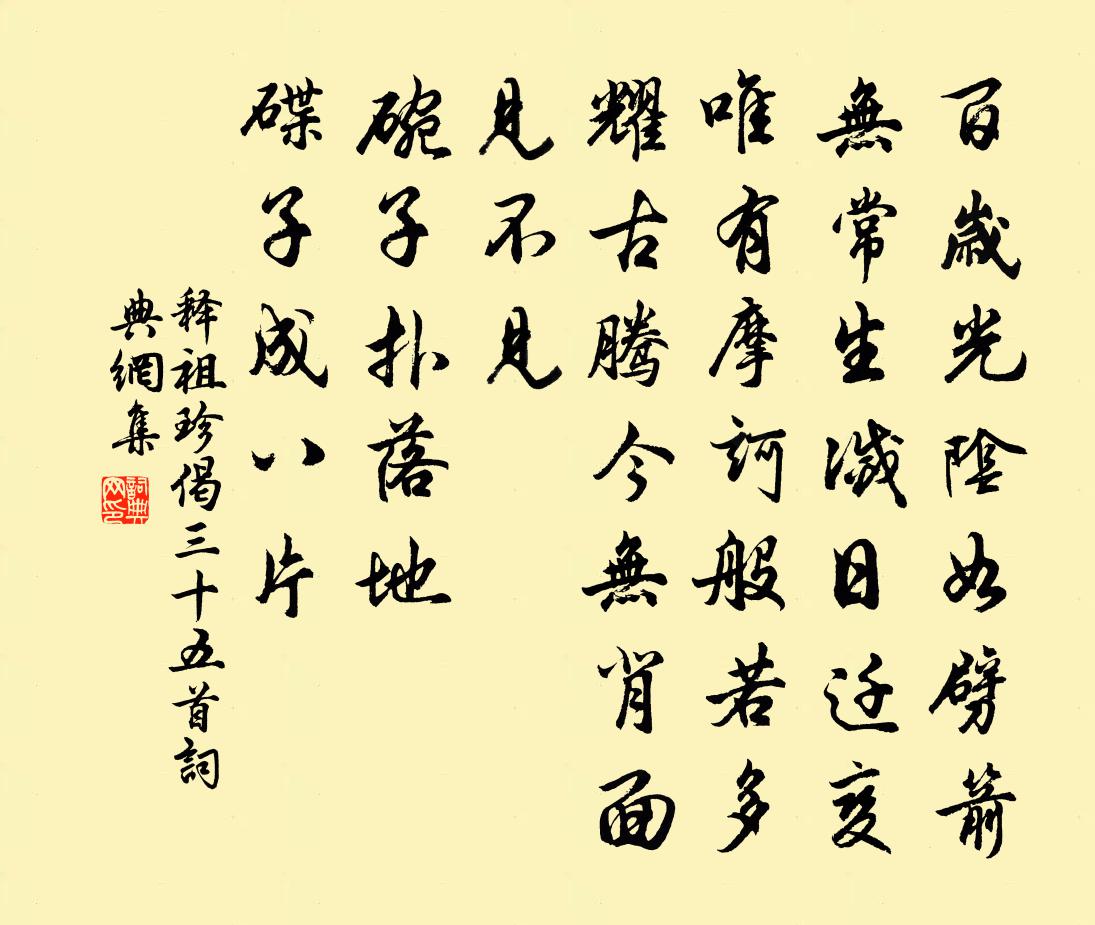 百歲光陰如劈箭
無常生滅日迁变
唯有摩訶般若多
耀古騰今無背面
見不見
碗子扑落地
碟子成八片
释祖珍偈三十五首詞
典網集
詞典网印